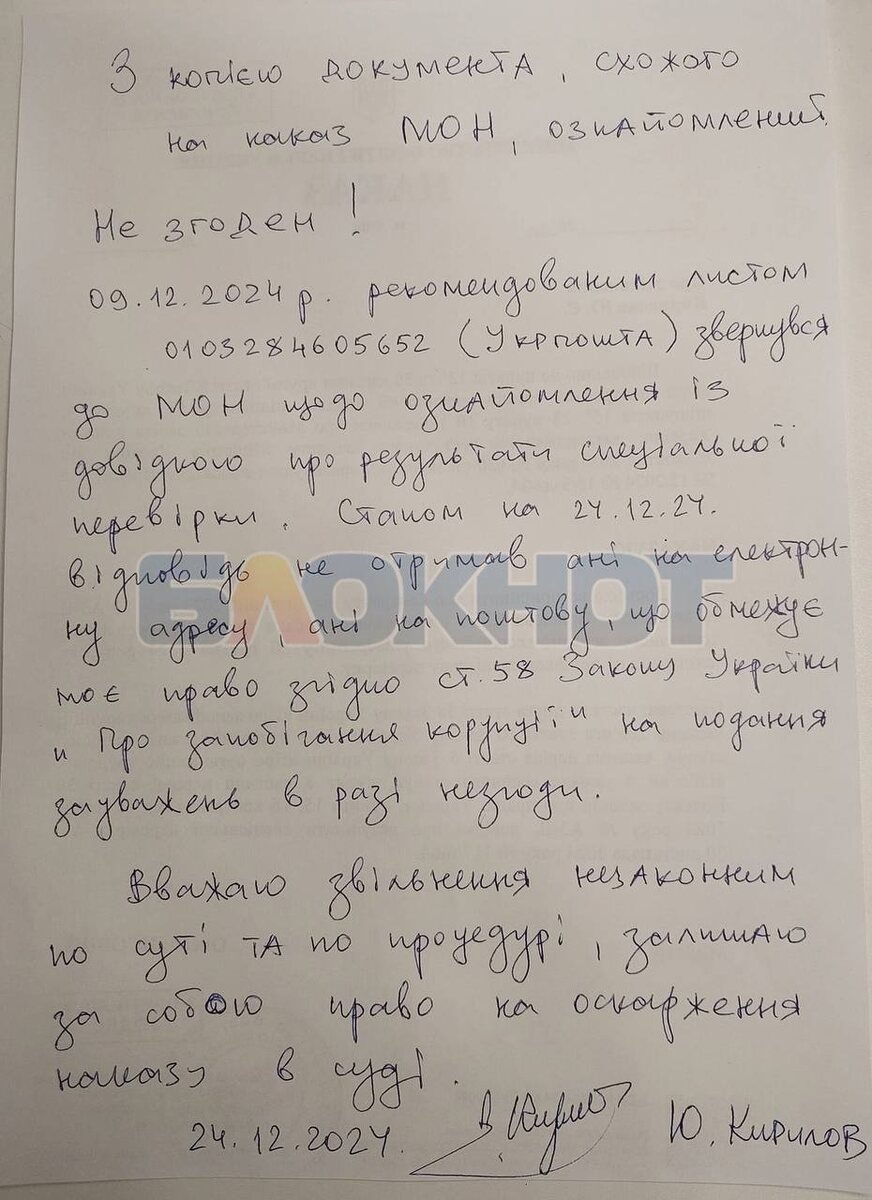 З копією документа, схожого
на наказ МОН, ознайомлений.
Не згоден!
09.12.2024р. рекомендованим листом
0103284605652 (Укрпошта) звернувся
до МОН щодо ознайомлення із
довідкою про результати спеціальної
перевірки. Станом на 24.12.24.
відповідь не отримав ані на електрон-
ну адресу, ані на поштову, що обмежує
моє право згідно ст.58 Закону України
"Про запобігання корупції" на подання
зауважень в разі незгоди.
Вважаю звільнення незаконним
по суті та по процедурі, залишаю
за собою право на оскарження
наказу в суді.
24.12.2024. Ю. Кирилов
БЛОКНОТ
НАКАЗ